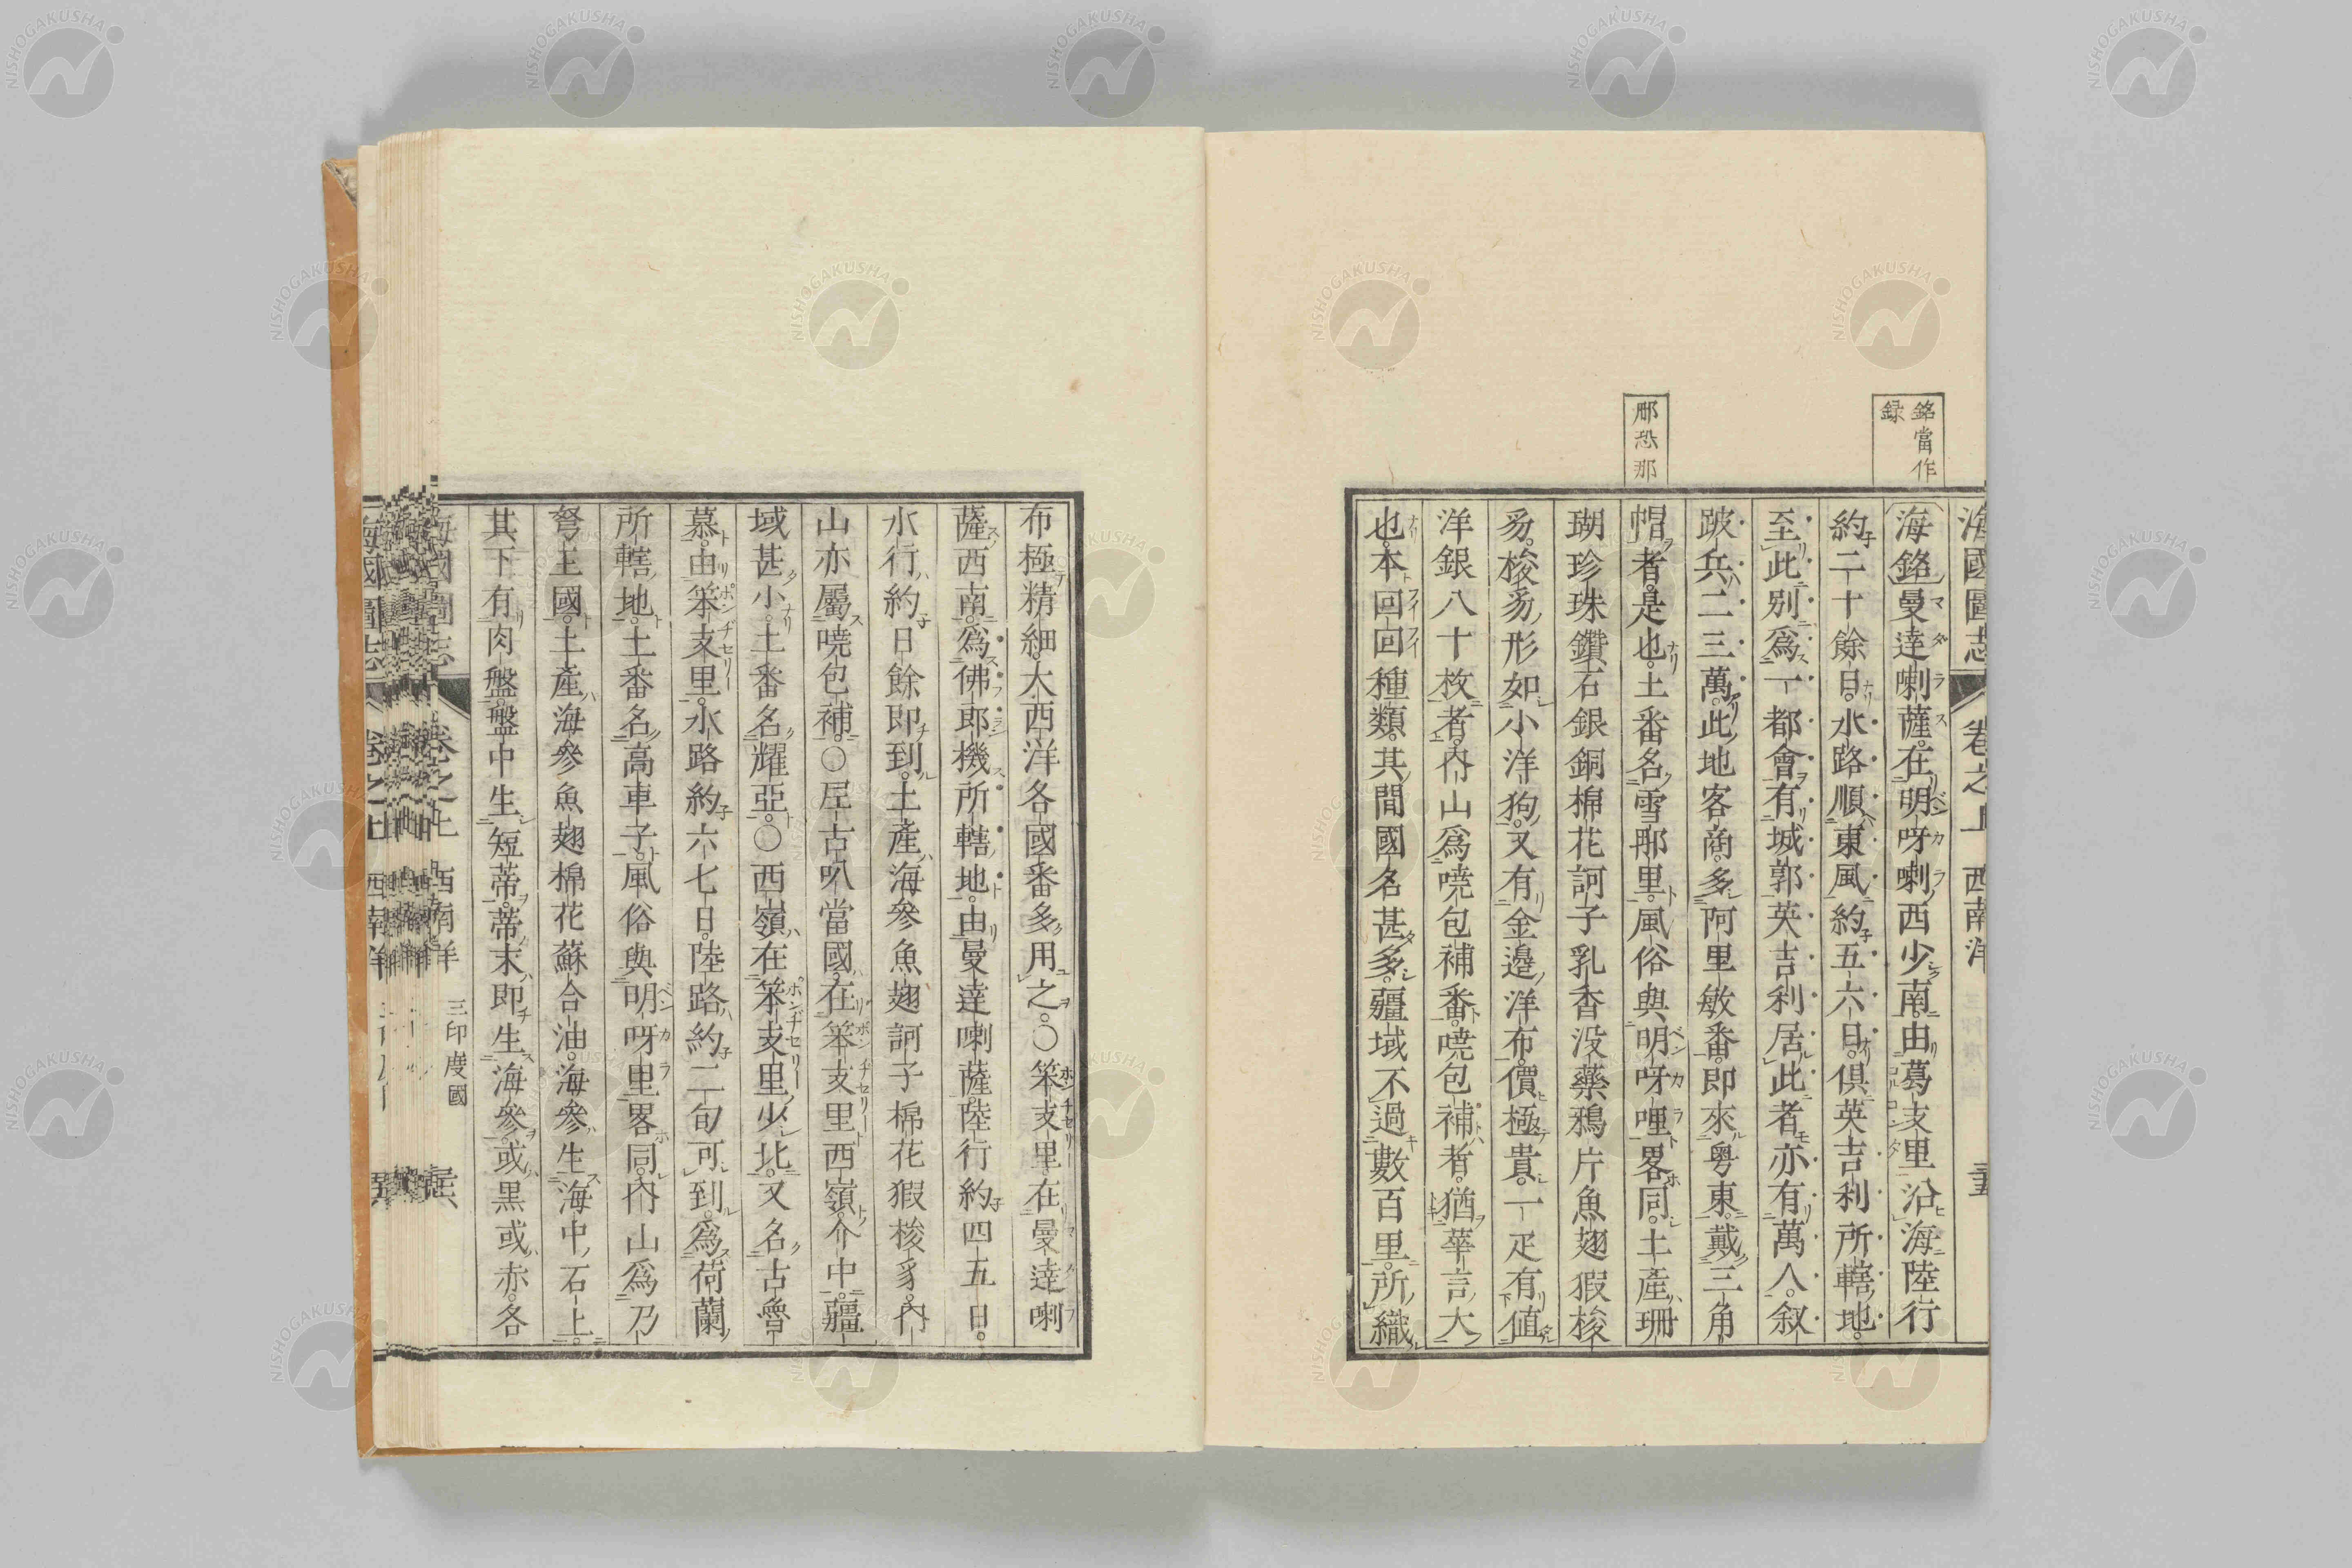 銘當作
録
郍恐那
海國圖志
卷之上
西南洋
海銘曼達喇薩。在明呀喇西少南。由葛支里沿海陸行
約二十餘日。水路順東風約五六日。俱英吉利所轄地。
至此別爲一都會有城郭英吉利居此者亦有萬人。叙
跛兵二三萬。此地客商。多阿里敏番。即來粤東。戴三角
帽者。是也。土番名雪郍里。風俗與明呀哩畧同。土產珊
瑚珍珠鑽石銀銅棉花訶子乳香没藥鴉片魚翅猳梭
豸。梭豸形如小洋狗。又有金邊洋布。價極貴。一疋有値
洋銀八十枚者。內山爲嘵包補番。嘵包補者。猶華言大
也。本回回種類。其間國名甚多。疆域不過數百里。所織
布極精細。大西洋各國番多用之。○笨支里在曼達喇
薩西南。爲佛郎機所轄地。由曼達喇薩陸行約四五日。
水行約日餘即到。土產海參魚翅訶子棉花猳梭豸。內
山亦屬嘵包補。○呸古叭當國。在笨支里西嶺。介中。疆
域甚小。土番名耀亞。○西嶺在笨支里少北。又名古魯
慕。由笨支里。水路約六七日。陸路約二旬可到。爲荷蘭
所轄地。土番名高車子。風俗與明呀里畧同。內山爲乃
弩王國。土產海參魚翅棉花蘇合油。海參生海中石上。
其下有肉盤。盤中生短蒂。蒂末即生海參。或黒或赤。各
三印度國